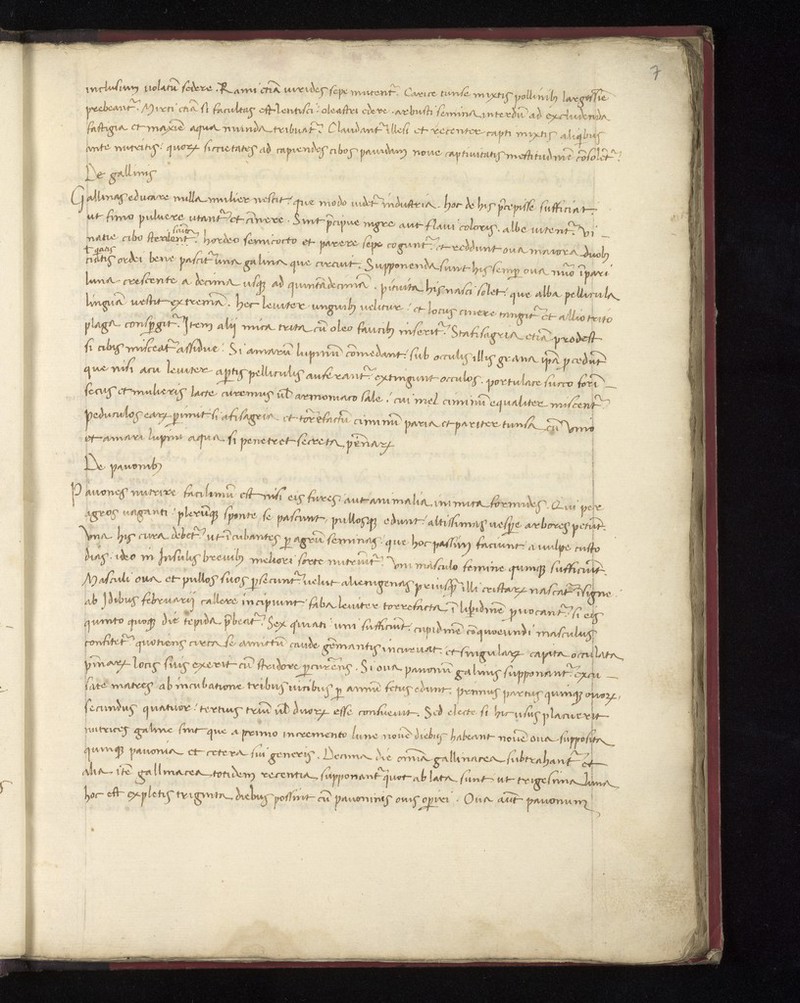 7
inclusum uolatũ sedere. Rami etiã uirides sepe mutent᷑. Carice tunse mixtis pollinib; largissĩe
prebeant᷑. Mirti etiã si facultas est lentisci: oleastri edere: arbusti semina interdũ ad excludenda
fastigia et maxiẽ aqua munda tribuat᷑. Claudant᷑ illesi et recenter capti mixtis aliq̃bus
ante nutritis: quoꝝ sicietates ad capiendos cibos pauidam noue captiuitatis mestitudinẽ cõsolent᷑.
De gallinis
Gallinas educare nulla mulier nescit: que modo uidet᷑ industria. hoc de his p̃cepisse sufficiat:
ut fimo puluere utant᷑ et cinere. Sint p̃cipue nigre aut flaui coloris. albe uitent᷑. Vi
natie cibo sterilent᷑. hordeo semicocto et parere sepe cogunt᷑. et reddunt oua maiora duob;
ciatis ordei bene pascit᷑ una galina que circuit. Supponenda sunt his semp̱ oua nũo ĩpari
luna crescente a decima usq; ad quintãdecimã. pituita his nasci solet: que alba pellicula
linguã uestit extremã. hec leuiter unguib; uelitur: et locus cinere tangit᷑ et allio trito
plaga consp̱git᷑. Item alij mica trita cũ oleo faucib; inserit᷑. Stafisagria etiã prodest
si cibis misceat᷑ assidue. Si amarũ lupinũ cõmedant: sub occulis illis grana ip̃a p̱cedũt
que nisi acu leuiter ap̱tis pelliculis auferant᷑: extingunt occulos. portulace succo forĩ
secus et mulieris lacte curemus uł armoniaco sale: cui mel ciminũ equaliter miscent᷑
peduculos eaꝝ p̱imit stafisagria et torrefactũ ciminũ paria et pariter tunsa cũ uino
et amari lupini aqua si penetret secreta pẽnaꝝ
De pauonib;
Pauones nutrire facilimũ est nisi eis fures: aut animalia inimica formides. Qui per
agros uaganti: plerũq; sponte se pascunt: pullosq; edunt: altissimas uesp̱e arbores petũt.
Vna his cura debet᷑ ut ĩcubantes p̱ agrũ feminas: que hoc passim faciunt: a uulpe custo
dias. ideo in Insulis breuib; meliori sorte nutriũt᷑. Vni masculo femine quinq; sufficiũt.
Masculi oua et pullos suos p̱secunt᷑ uelut alienigenas priusq̃ illi cristaꝝ nascat᷑ ĩsigne.
ab Idibus februarij callere incipiunt: faba leuiter torrefacta ĩ libidinẽ p̱uocant᷑ si eis
quinto quoq; die tepida p̃beat᷑. Sex quiati uni sufficiũt. cupidinẽ coquoeundi masculus
confitet᷑ quotiens circa se amictũ caude gẽmantis incuruat: et singulaꝝ capita occulata
pẽnaꝝ locis suis exerit cũ stridore p̱currẽs. Si oua pauonũ galinis supponant᷑: excu
sate matres ab incubatione tribus uicibus p̱ annũ fetus edunt. primus partus quinq; ouoꝝ.
secundus quatuor: tertius triũ uł duoꝝ esse consueuit. Sed electe si hic usus placuerit
nutrices galine sint que a primo incremento lune nouẽ diebus habeant nouẽ oua supposita
quinq; pauonia et cetera sui generis. Decima die oñia gallinacea subtrahant᷑ et
alia itẽ gallinacea totidem recentia supponant᷑ quot ablata sunt ut trigesima luna
hoc est expletis triginta diebus possint cũ pauoninis ouis op̱iri. Oua aut̃ pauonum